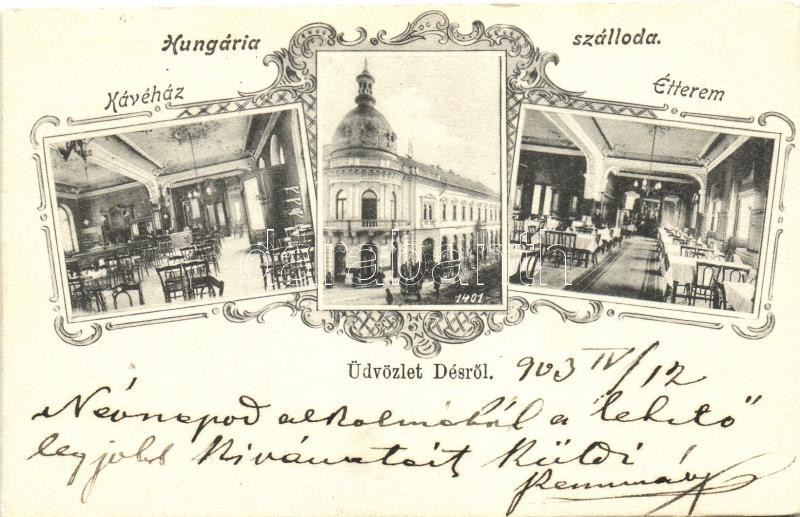 Hungária szálloda.
Kávéház Étterem
darabanth
1401
Üdvözlet Désről. 903 IV/12
Névnapod alkalmából a lehető
legjobb kivánatait küldi